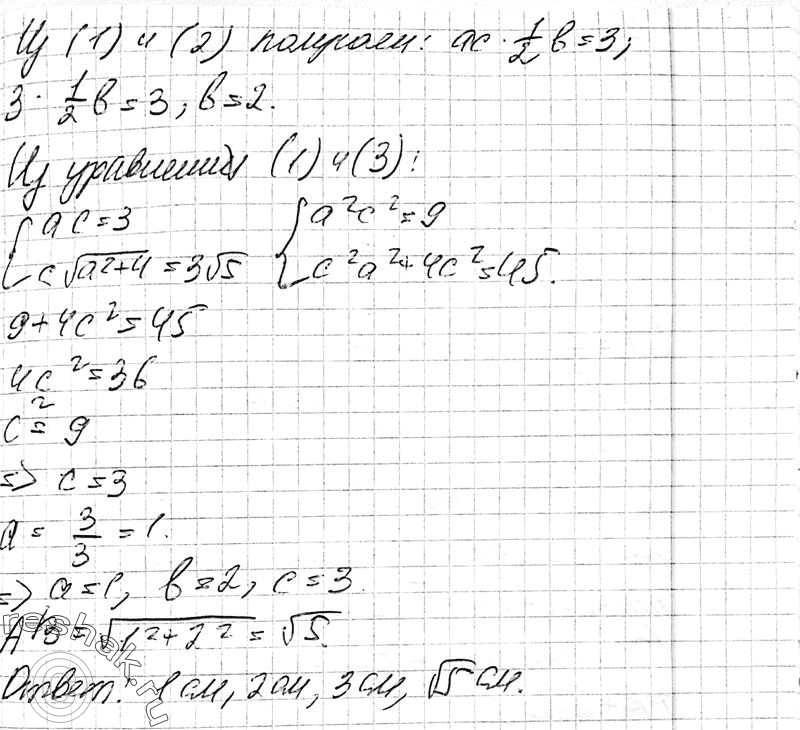 Из (1) и (2) получаем: ac · 1/2 b = 3;
3 · 1/2 b = 3, b = 2.
Из уравнений (1) и (3):
{ ac = 3 { a²c² = 9
c√(a²+4) = 3√5 c²a² + 4c² = 45.
9 + 4c² = 45
4c² = 36
c² = 9
=> c = 3
a = 3/3 = 1.
=> a = 1, b = 2, c = 3.
AB = √(1² + 2²) = √5.
Ответ: 1 см, 2 см, 3 см, √5 см.
reshak.ru